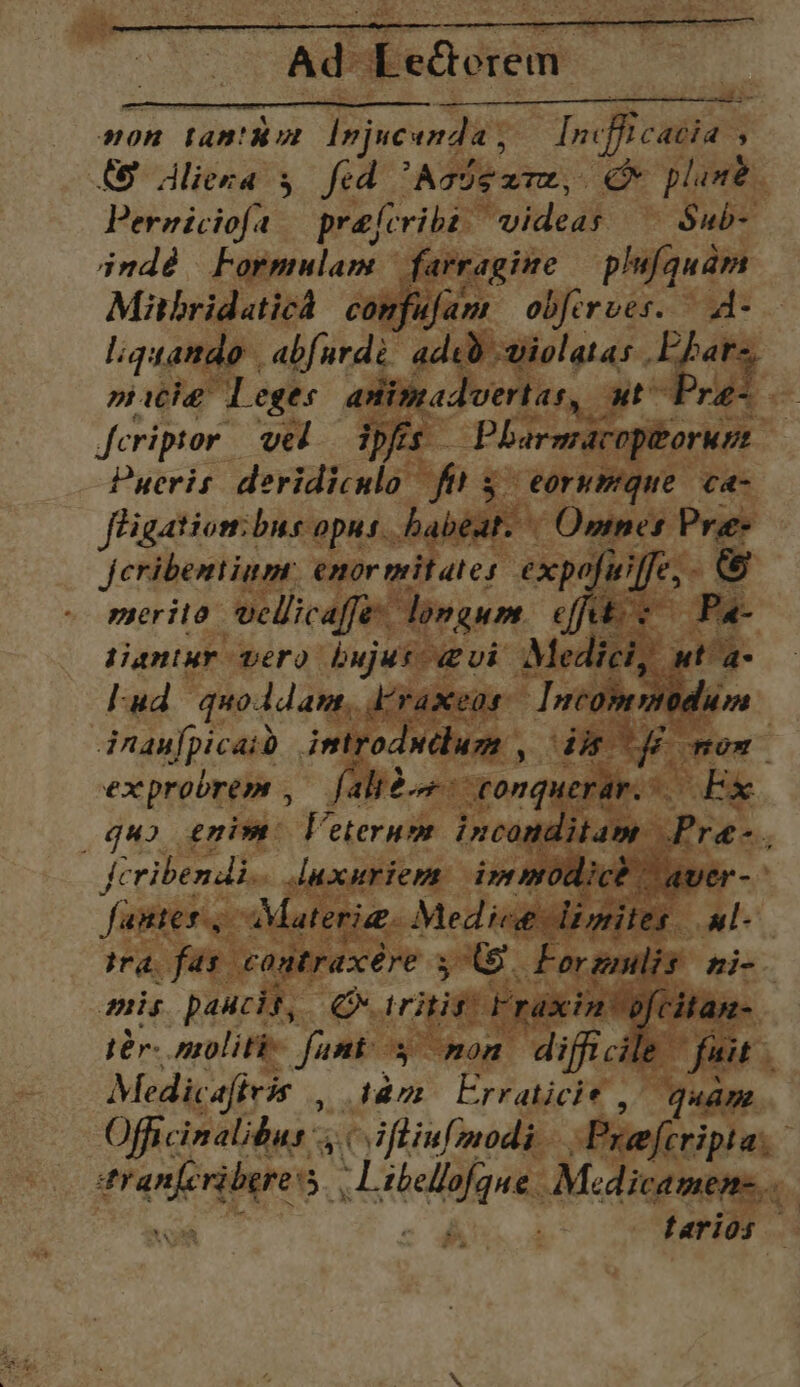 Ad Lectorem
non tantùm Injucunda, Inefficacia,
& Aliena; sed Ἀσύστατα, & planè
Perniciosa præscribi videas Sub-
indè Formulam farragine plusquàm
Mithridaticâ confusam observes. A-
liquando absurdè adeò violatas Phar-
maciæ Leges animadvertas, ut Præ-
scriptor vel ipsis Pharmacopœorum
Pueris deridiculo sit; eorumque ca-
stigationibus opus habeat. Omnes Præ-
scribentium enormitates exposuisse, &
merito vellicasse longum esset: Pa-
tiantur vero hujus ævi Medici, ut a-
liud quoddam Praxeos Incommodum
inauspicatò introductum, iis si non
exprobrem, saltè conquerar. Ex
quo enim Veterum inconditam Præ-
scribendi luxuriem immodicè aver-
santes, Materiæ Medicæ limites ul-
tra fas contraxêre; & Formulis ni-
mis paucis, & tritis Praxin oscitan-
tèr moliti sunt; non difficile fuit
Medicastris, tàm Erraticis, quàm
Officinalibus, istiusmodi Præscripta
transcribere; Libellosque Medicamen-
tarios